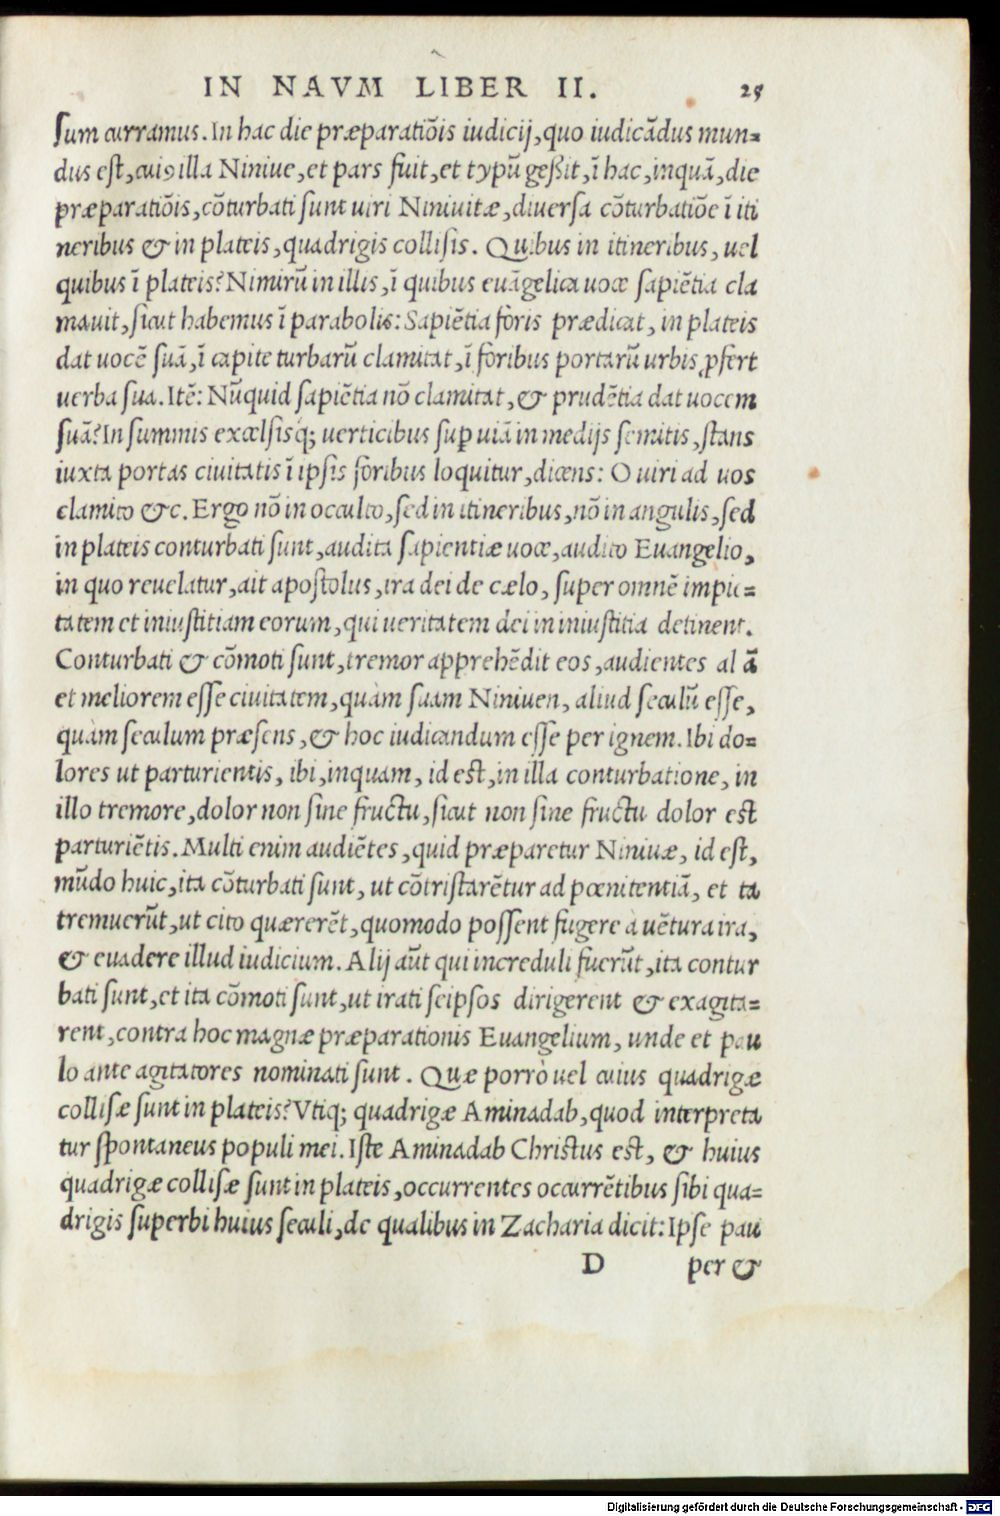 IN NAVM LIBER II. 25
sum curramus. In hac die præparatiõis iudicij, quo iudicãdus mun=
dus est, cuiꝰ illa Niniue, et pars fuit, et typũ geßit, ĩ hac, inquã, die
præparatiõis, cõturbati sunt uiri Niniuitæ, diuersa cõturbatiõe ĩ iti
neribus & in plateis, quadrigis collisis. Quibus in itineribus, uel
quibus ĩ plateis? Nimirũ in illis, ĩ quibus euãgelica uoce sapiẽtia cla
mauit, sicut habemus ĩ parabolis: Sapiẽtia foris prædicat, in plateis
dat uocẽ suã, ĩ capite turbarũ clamitat, ĩ foribus portarũ urbis ꝓfert
uerba sua. Itẽ: Nũquid sapiẽtia nõ clamitat, & prudẽtia dat uocem
suã? In summis excelsisq́; uerticibus suꝑ uiã in medijs semitis, stans
iuxta portas ciuitatis ĩ ipsis foribus loquitur, dicens: O uiri ad uos
clamito &c. Ergo nõ in occulto, sed in itineribus, nõ in angulis, sed
in plateis conturbati sunt, audita sapientiæ uoce, audito Euangelio,
in quo reuelatur, ait apostolus, ira dei de cælo, super omnẽ impie=
tatem et iniustitiam eorum, qui ueritatem dei in iniustitia detinent.
Conturbati & cõmoti sunt, tremor apprehẽdit eos, audientes al ã
et meliorem esse ciuitatem, quàm suam Niniuen, aliud seculũ esse,
quàm seculum præsens, & hoc iudicandum esse per ignem. Ibi do=
lores ut parturientis, ibi, inquam, id est, in illa conturbatione, in
illo tremore, dolor non sine fructu, sicut non sine fructu dolor est
parturiẽtis. Multi enim audiẽtes, quid præparetur Niniuæ, id est,
mũdo huic, ita cõturbati sunt, ut cõtristarẽtur ad pœnitentiã, et ta
tremuerũt, ut cito quærerẽt, quomodo possent fugere à uẽtura ira,
& euadere illud iudicium. Alij aũt qui increduli fuerũt, ita contur
bati sunt, et ita cõmoti sunt, ut irati seipsos dirigerent & exagita=
rent, contra hoc magnæ præparationis Euangelium, unde et pau
lo ante agitatores nominati sunt. Quæ porrò uel cuius quadrigæ
collisæ sunt in plateis? Vtiq; quadrigæ Aminadab, quod interpreta
tur spontaneus populi mei. Iste Aminadab Christus est, & huius
quadrigæ collisæ sunt in plateis, occurrentes occurrẽtibus sibi qua=
drigis superbi huius seculi, de qualibus in Zacharia dicit: Ipse pau
D per &
Digitalisierung gefördert durch die Deutsche Forschungsgemeinschaft - DFG